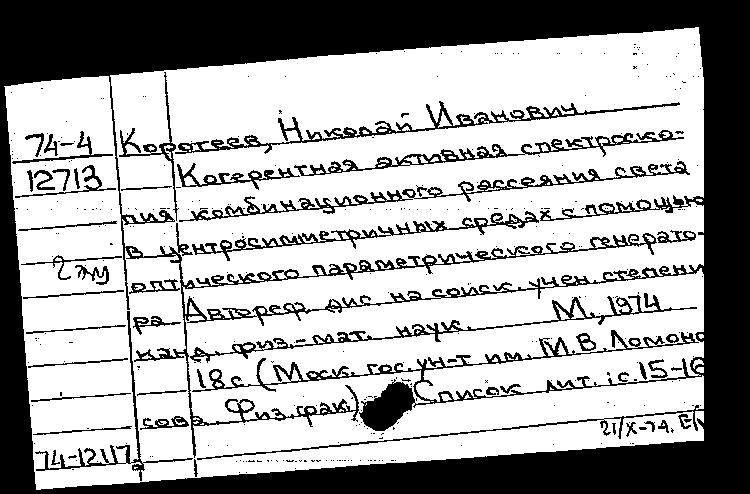 74-4 Коротеев, Николай Иванович
12713 Когерентная активная спектроско-
пия комбинационного рассеяния света
2 экз в центросимметричных средах с помощью
оптического параметрического генерато-
ра. Автореф. дис. на соиск. учен. степени
канд. физ.-мат. наук. М., 1974
18 с. (Моск. гос. ун-т им. М.В. Ломоно
сова. Физ. фак.) Список лит.: с. 15-16
74-12117 21/X-74.